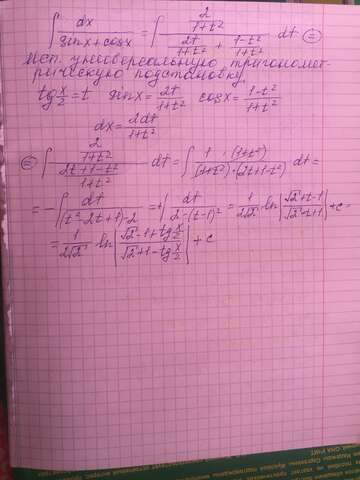 ∫ dx/(sinx + cosx) = ∫ (2/(1+t²))/(2t/(1+t²) + (1-t²)/(1+t²)) dt ⊜
Исп. универсальную тригономет-
рическую подстановку.
tg x/2 = t sinx = 2t/(1+t²) cosx = (1-t²)/(1+t²)
dx = 2dt/(1+t²)
⊜ ∫ (2/(1+t²))/((2t+1-t²)/(1+t²)) dt = ∫ 1·(1+t²)/((1+t²)·(2t+1-t²)) dt =
= -∫ dt/((t²-2t+1)-2) = +∫ dt/(2-(t-1)²) = 1/(2√2) ln|(√2+t-1)/(√2-t+1)| + c =
= 1/(2√2) ln|(√2-1+tg x/2)/(√2+1-tg x/2)| + c